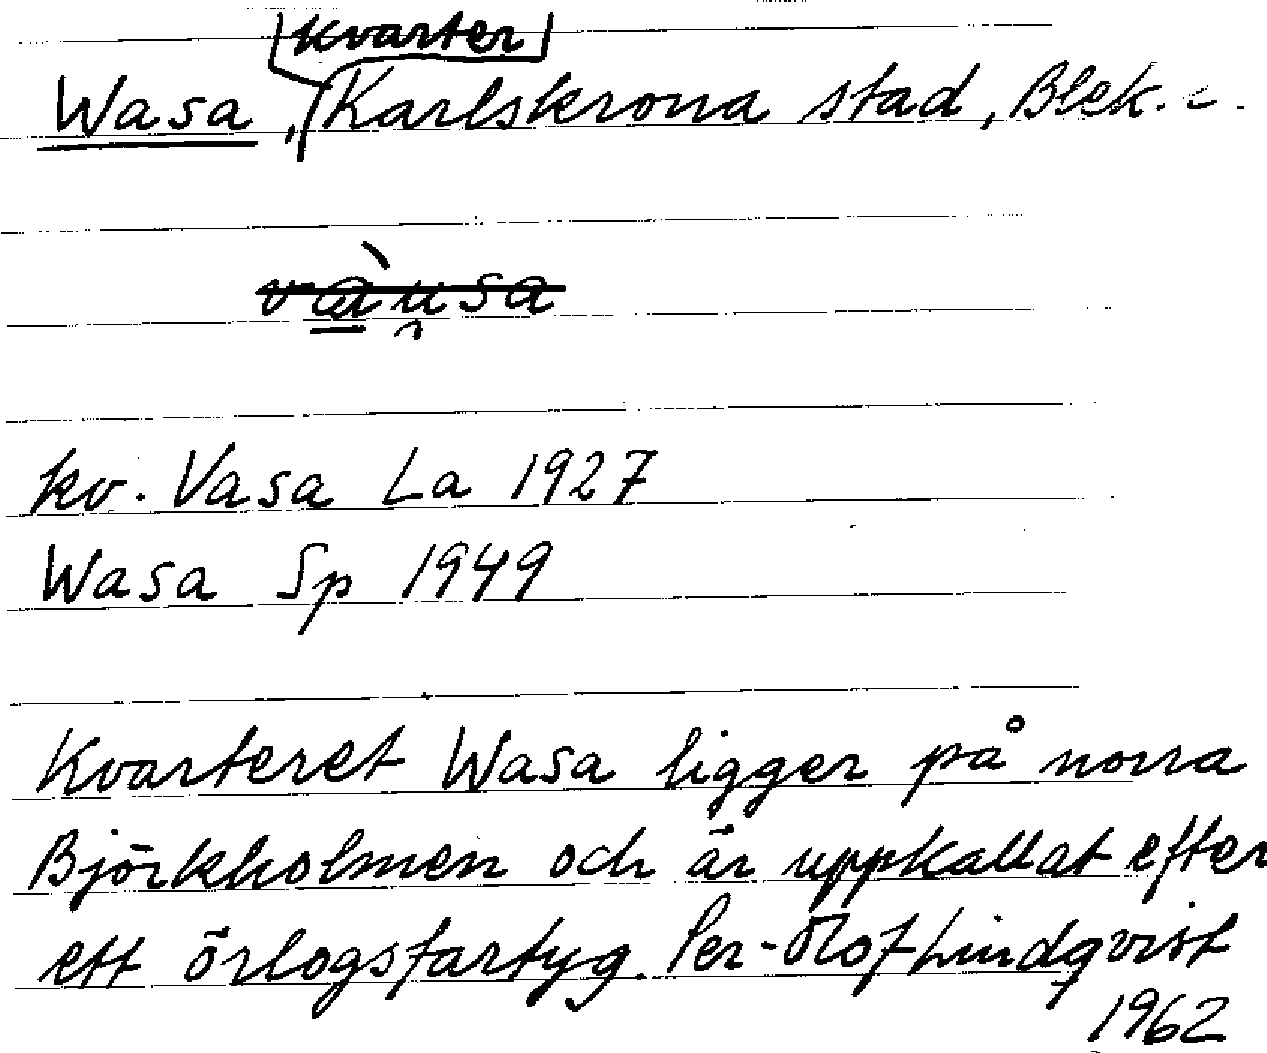 Wasa, kvarter Karlskrona stad, Blek. L.
vausa
kv. Vasa La 1927
Wasa Sp 1949
Kvarteret Wasa ligger på norra
Björkholmen och är uppkallat efter
ett örlogsfartyg. Per-Olof Lindqvist
1962